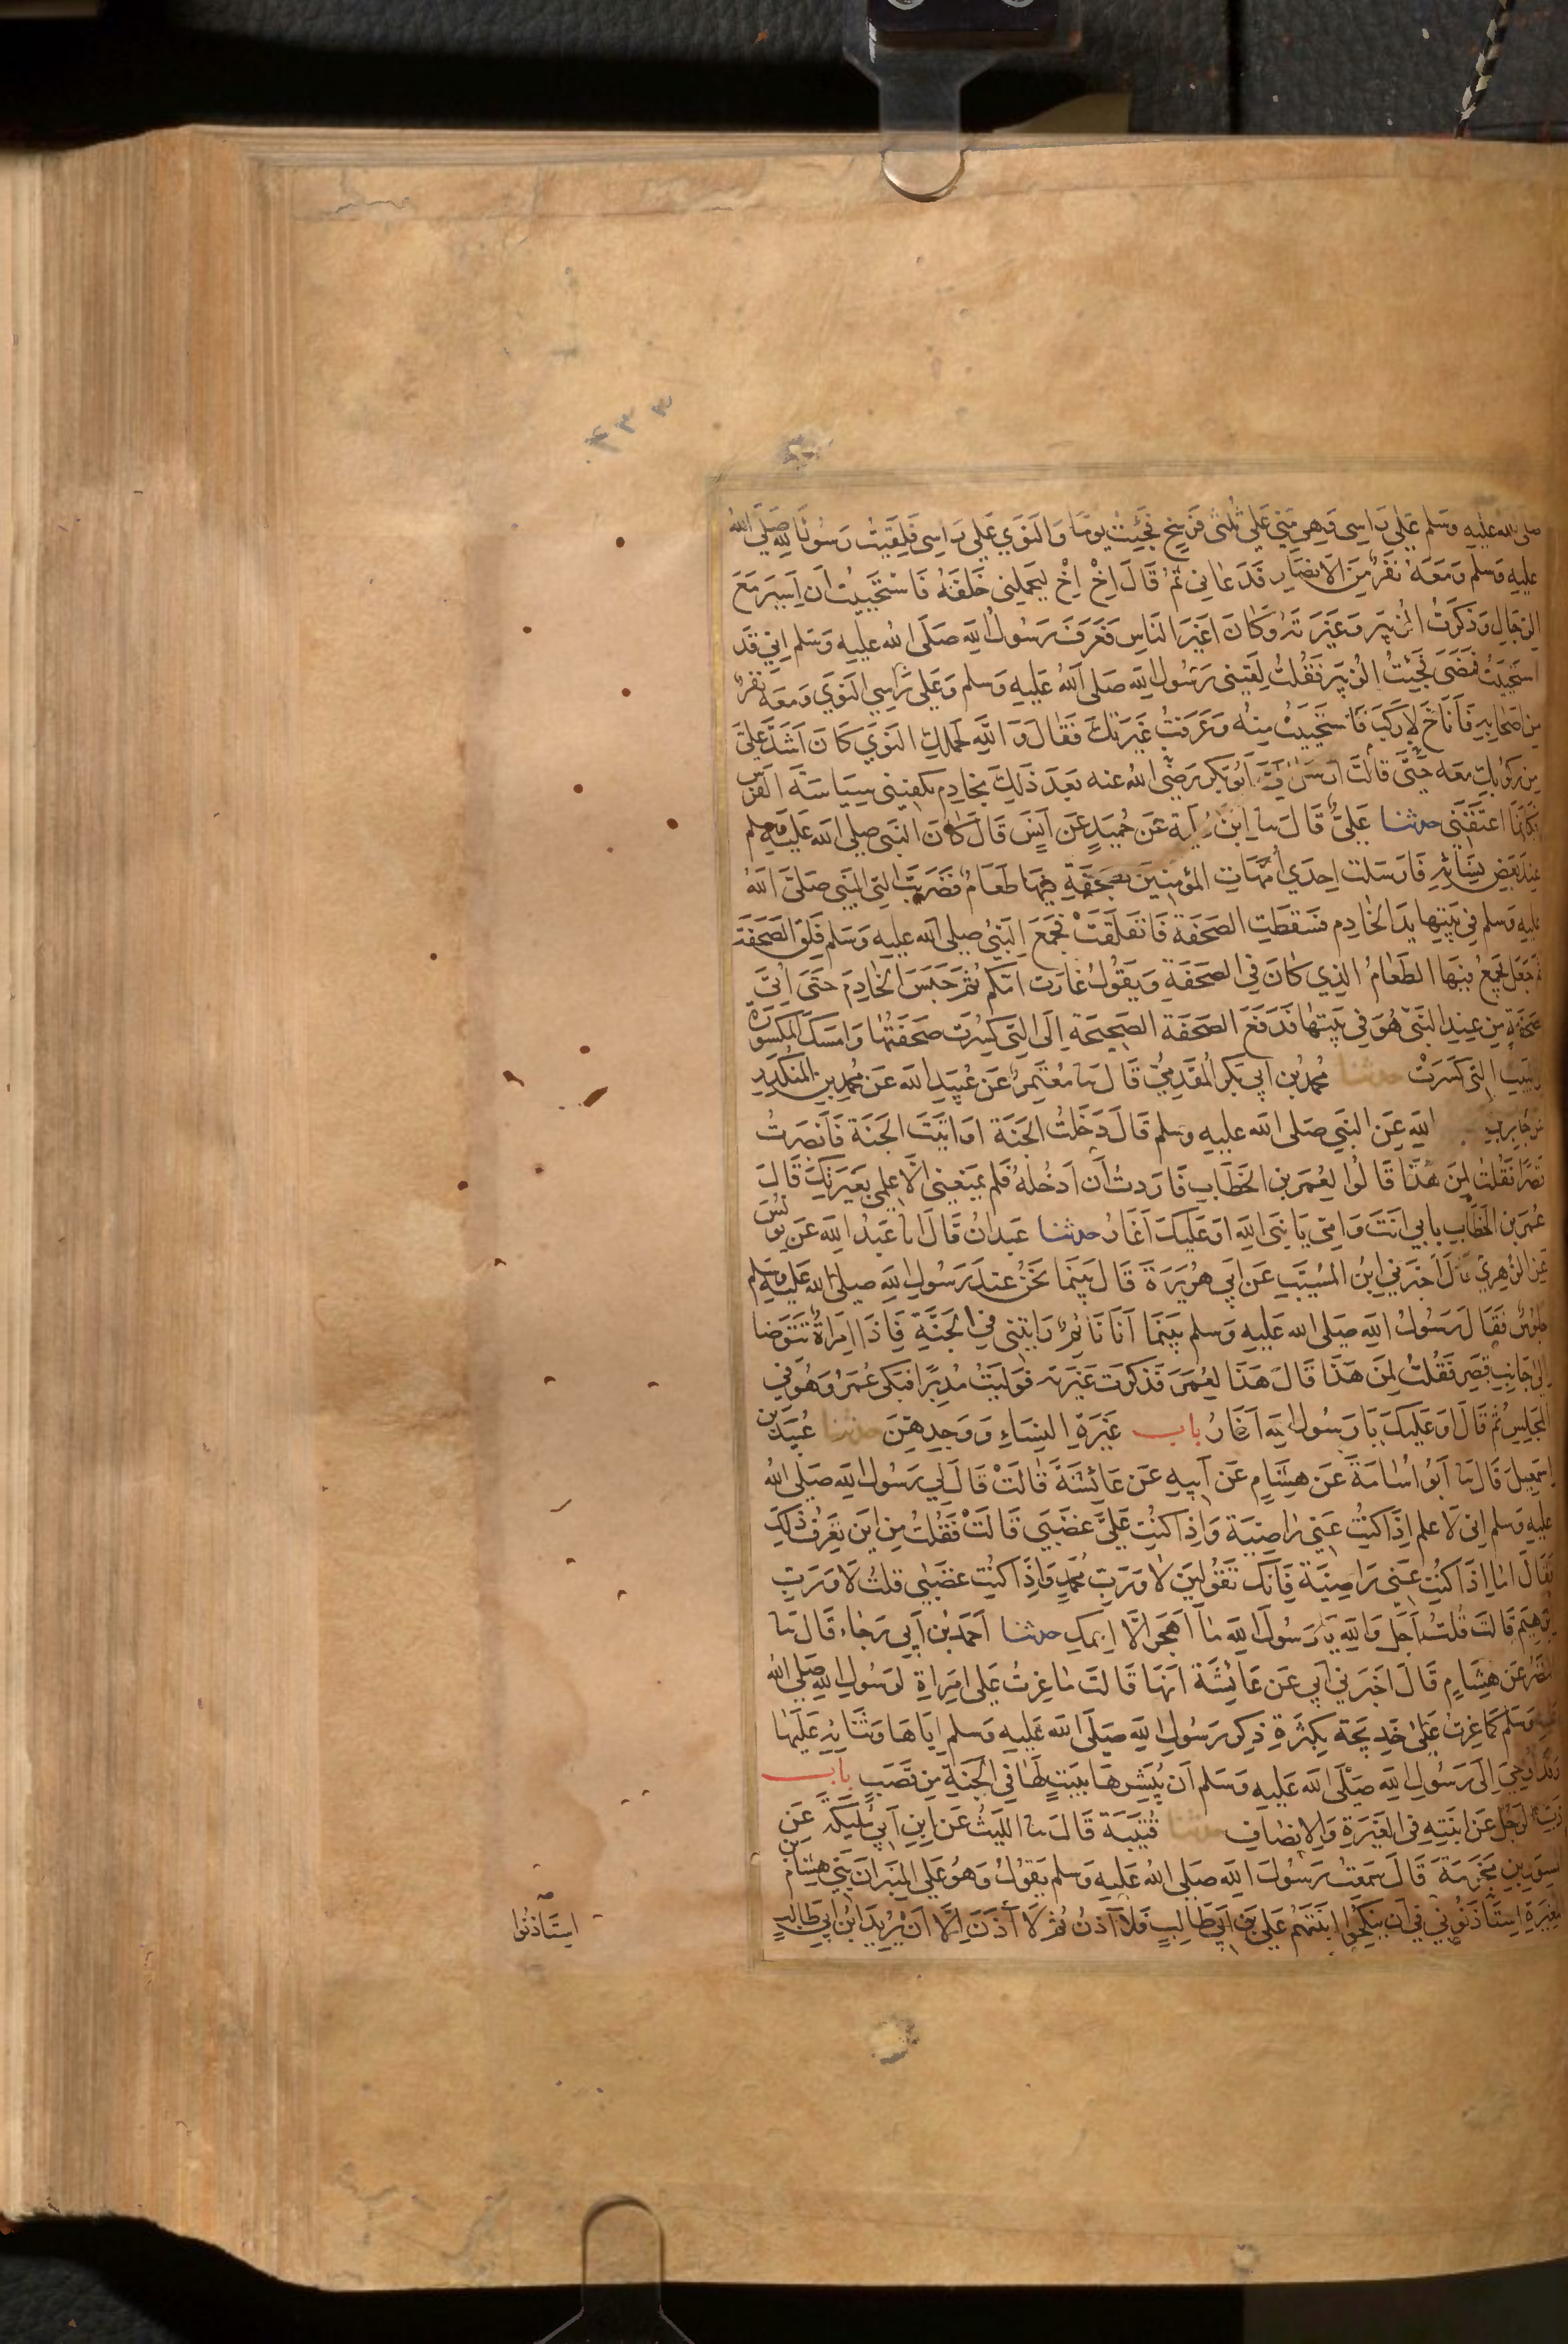 ٣٣٤
صلى الله عليه وسلم على راسى وهى منى على ثلثى فرسخ فجئت يوما والنوى على راسى فلقيت رسول الله صلى الله
عليه وسلم ومعه نفر من الانصار فدعانى ثم قال اخ اخ ليحملنى خلفه فاستحييت ان اسير مع
الرجال وذكرت الزبير وغيرته وكان اغير الناس فعرف رسول الله صلى الله عليه وسلم انى قد
استحييت فمضى فجئت الزبير فقلت لقينى رسول الله صلى الله عليه وسلم وعلى راسى النوى ومعه نفر
من اصحابه فاناخ لاركب فاستحييت منه وعرفت غيرتك فقال والله لحملك النوى كان اشد على
من ركوبك معه حتى قالت ارسل ابو بكر رضى الله عنه بعد ذلك بخادم يكفينى سياسة الفرس
فكانما اعتقنى حدثنا على قال نا ابن علية عن حميد عن انس قال كان النبى صلى الله عليه وسلم
عند بعض نسائه فارسلت احدى امهات المؤمنين بصحفة فيها طعام فضربت التى النبى صلى الله
عليه وسلم فى بيتها يد الخادم فسقطت الصحفة فانفلقت فجمع النبى صلى الله عليه وسلم فلق الصحفة
ثم جعل يجمع فيها الطعام الذى كان فى الصحفة ويقول غارت امكم ثم حبس الخادم حتى اتى
بصحفة من عند التى هو فى بيتها فدفع الصحفة الصحيحة الى التى كسرت صحفتها وامسك المكسورة
فى بيت التى كسرت حدثنا محمد بن ابى بكر المقدمى قال نا معتمر عن عبيد الله عن محمد بن المنكدر
عن جابر بن الله عن النبى صلى الله عليه وسلم قال دخلت الجنة او اتيت الجنة فابصرت
قصرا فقلت لمن هذا قالوا لعمر بن الخطاب فاردت ان ادخله فلم يمنعنى الا علمى بغيرتك قال
عمر بن الخطاب بابى انت وامى يا نبى الله او عليك اغار حدثنا عبدان قال انا عبد الله عن يونس
عن الزهرى قال اخبرنى ابن المسيب عن ابى هريرة قال بينما نحن عند رسول الله صلى الله عليه وسلم
جلوس فقال رسول الله صلى الله عليه وسلم بينما انا نائم رايتنى فى الجنة فاذا امراة تتوضا
الى جانب قصر فقلت لمن هذا قال هذا لعمر فذكرت غيرته فوليت مدبرا فبكى عمر وهو فى
المجلس ثم قال او عليك يا رسول الله اغار باب غيرة النساء ووجدهن حدثنا عبيد بن
اسمعيل قال نا ابو اسامة عن هشام عن ابيه عن عائشة قالت قال لى رسول الله صلى الله
عليه وسلم انى لاعلم اذا كنت عنى راضية واذا كنت على غضبى قالت فقلت من اين تعرف ذلك
فقال اما اذا كنت عنى راضية فانك تقولين لا ورب محمد واذا كنت غضبى قلت لا ورب
ابرهيم قالت قلت اجل والله يا رسول الله ما اهجر الا اسمك حدثنا احمد بن ابى رجاء قال نا
النضر عن هشام قال اخبرنى ابى عن عائشة انها قالت ما غرت على امراة لرسول الله صلى الله
عليه وسلم كما غرت على خديجة بكثرة ذكر رسول الله صلى الله عليه وسلم اياها وثنائه عليها
وقد اوحى الى رسول الله صلى الله عليه وسلم ان يبشرها ببيت لها فى الجنة من قصب باب
ذب الرجل عن ابنته فى الغيرة والانصاف حدثنا قتيبة قال نا الليث عن ابن ابى مليكة عن
المسور بن مخرمة قال سمعت رسول الله صلى الله عليه وسلم يقول وهو على المنبر ان بنى هشام بن
المغيرة استاذنونى فى ان ينكحوا ابنتهم على بن ابى طالب فلا آذن ثم لا آذن الا ان يريد ابن ابى طالب
استاذنوا